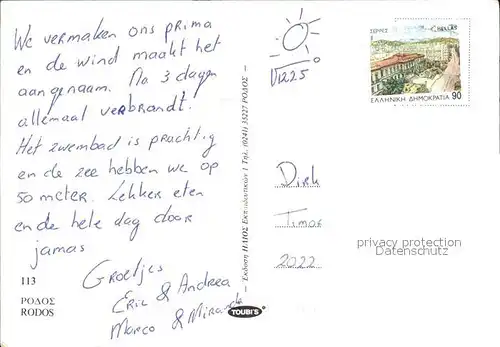 We vermaken ons prima
en de wind maakt het
aangenaam. Na 3 dagen
allemaal verbrandt.
Het zwembad is prachtig
en de zee hebben we op
50 meter. Lekker eten
en de hele dag door
jamas
Groetjes
Eric & Andrea
Marco & Miranda
113
ΡΟΔΟΣ
RODOS
TOUBI'S
— Έκδοση ΗΛΙΟΣ Εκπαιδευτικών 1 Τηλ. (0241) 35227 ΡΟΔΟΣ —
ΣΕΡΡΕΣ
HELLAS
ΕΛΛΗΝΙΚΗ ΔΗΜΟΚΡΑΤΙΑ 90
Dirk
Timor
2022
privacy protection
Datenschutz